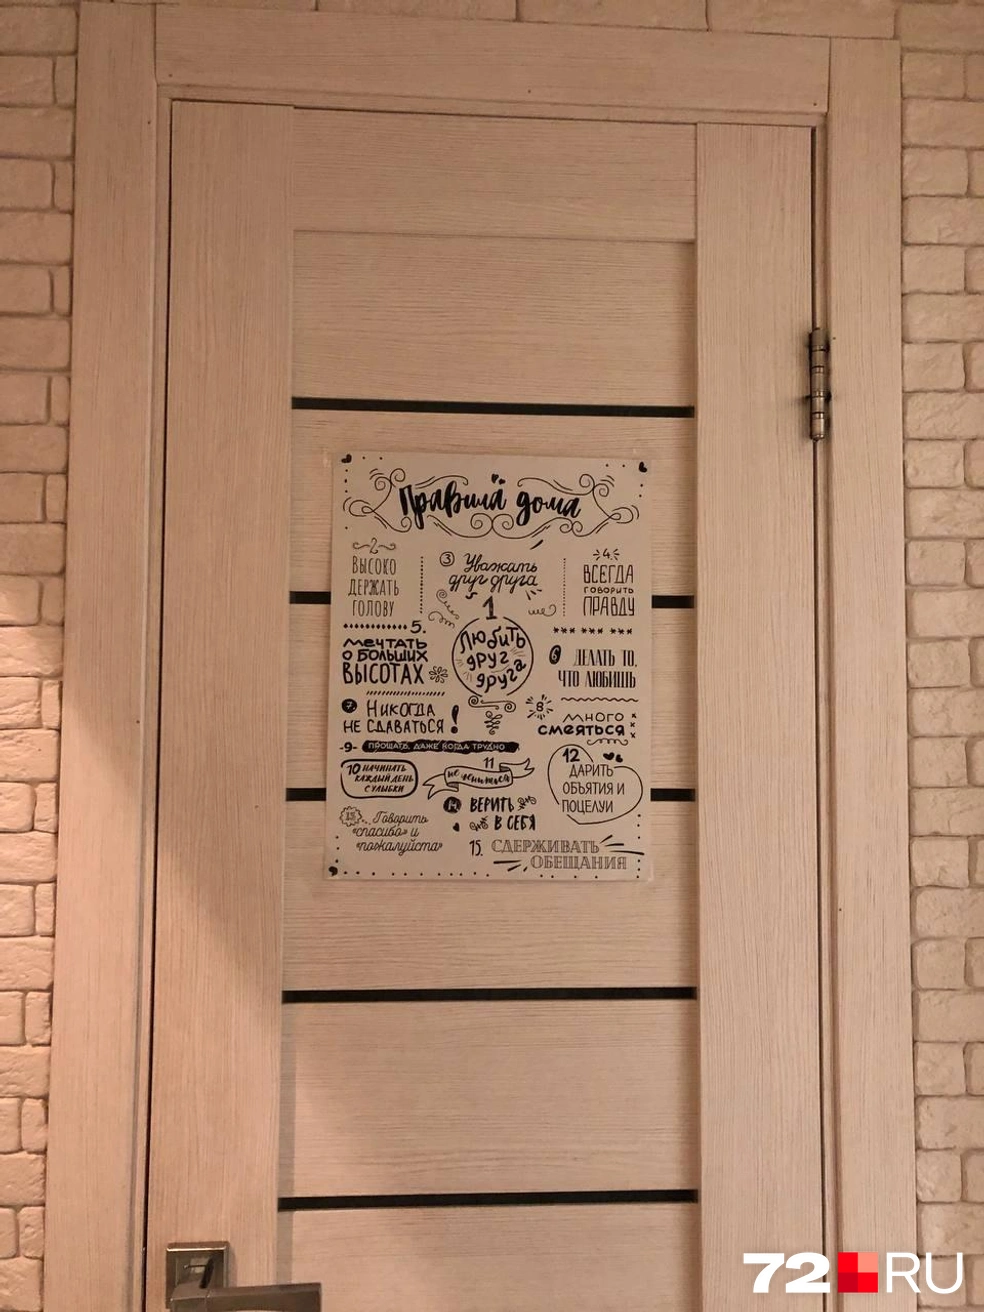 Правила дома
2
ВЫСОКО
ДЕРЖАТЬ
ГОЛОВУ
3 Уважать
друг друга
4.
ВСЕГДА
ГОВОРИТЬ
ПРАВДУ
1
Любить
друг
друга
5.
МЕЧТАТЬ
О БОЛЬШИХ
ВЫСОТАХ
6 ДЕЛАТЬ ТО,
ЧТО ЛЮБИШЬ
7 НИКОГДА
НЕ СДАВАТЬСЯ!
8
МНОГО
СМЕЯТЬСЯ
-9- ПРОЩАТЬ, ДАЖЕ КОГДА ТРУДНО
10 НАЧИНАТЬ
КАЖДЫЙ ДЕНЬ
С УЛЫБКИ
11
не
12
ДАРИТЬ
ОБЪЯТИЯ И
ПОЦЕЛУИ
Говорить
«спасибо» и
«пожалуйста»
14 ВЕРИТЬ
В СЕБЯ
15. СДЕРЖИВАТЬ
ОБЕЩАНИЯ
72 RU